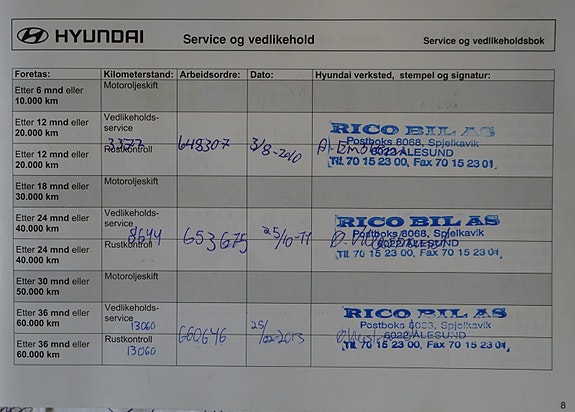 HYUNDAI
Service og vedlikehold
Service og vedlikeholdsbok
Foretas: Kilometerstand: Arbeidsordre: Dato: Hyundai verksted, stempel og signatur:
Etter 6 mnd eller 10.000 km
Motoroljeskift
Etter 12 mnd eller 20.000 km
Vedlikeholds-
service
3377
648307
3/8-2010
RICO BIL AS
Postboks 8068, Spjelkavik
6022 ÅLESUND
Tlf. 70 15 23 00, Fax 70 15 23 01
Etter 12 mnd eller 20.000 km
Rustkontroll
Etter 18 mnd eller 30.000 km
Motoroljeskift
Etter 24 mnd eller 40.000 km
Vedlikeholds-
service
8644
653675
25/10-11
RICO BIL AS
Postboks 8068, Spjelkavik
6022 ÅLESUND
Tlf. 70 15 23 00, Fax 70 15 23 01
Etter 24 mnd eller 40.000 km
Rustkontroll
Etter 30 mnd eller 50.000 km
Motoroljeskift
Etter 36 mnd eller 60.000 km
Vedlikeholds-
service
13060
660646
25/
2013
RICO BIL AS
Postboks 8068, Spjelkavik
6022 ÅLESUND
Tlf. 70 15 23 00, Fax 70 15 23 01
Etter 36 mnd eller 60.000 km
Rustkontroll
13060
8